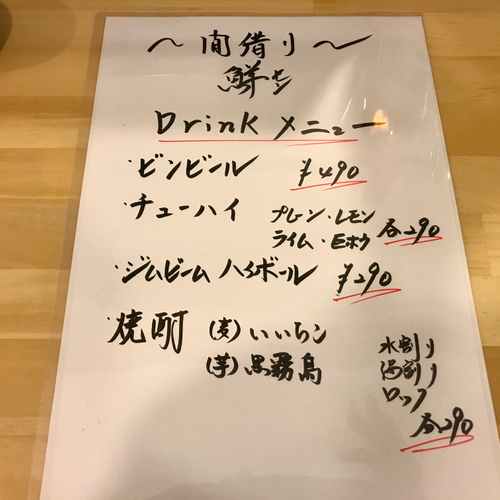 ～間借り～
鮮や
Drink メニュー
・ビンビール ¥490
・チューハイ プレーン・レモン
ライム・巨ホウ 各290
・ジムビーム ハイボール ¥290
・焼酎 (麦) いいちこ
(芋) 黒霧島
水割り
湯割り
ロック
各290